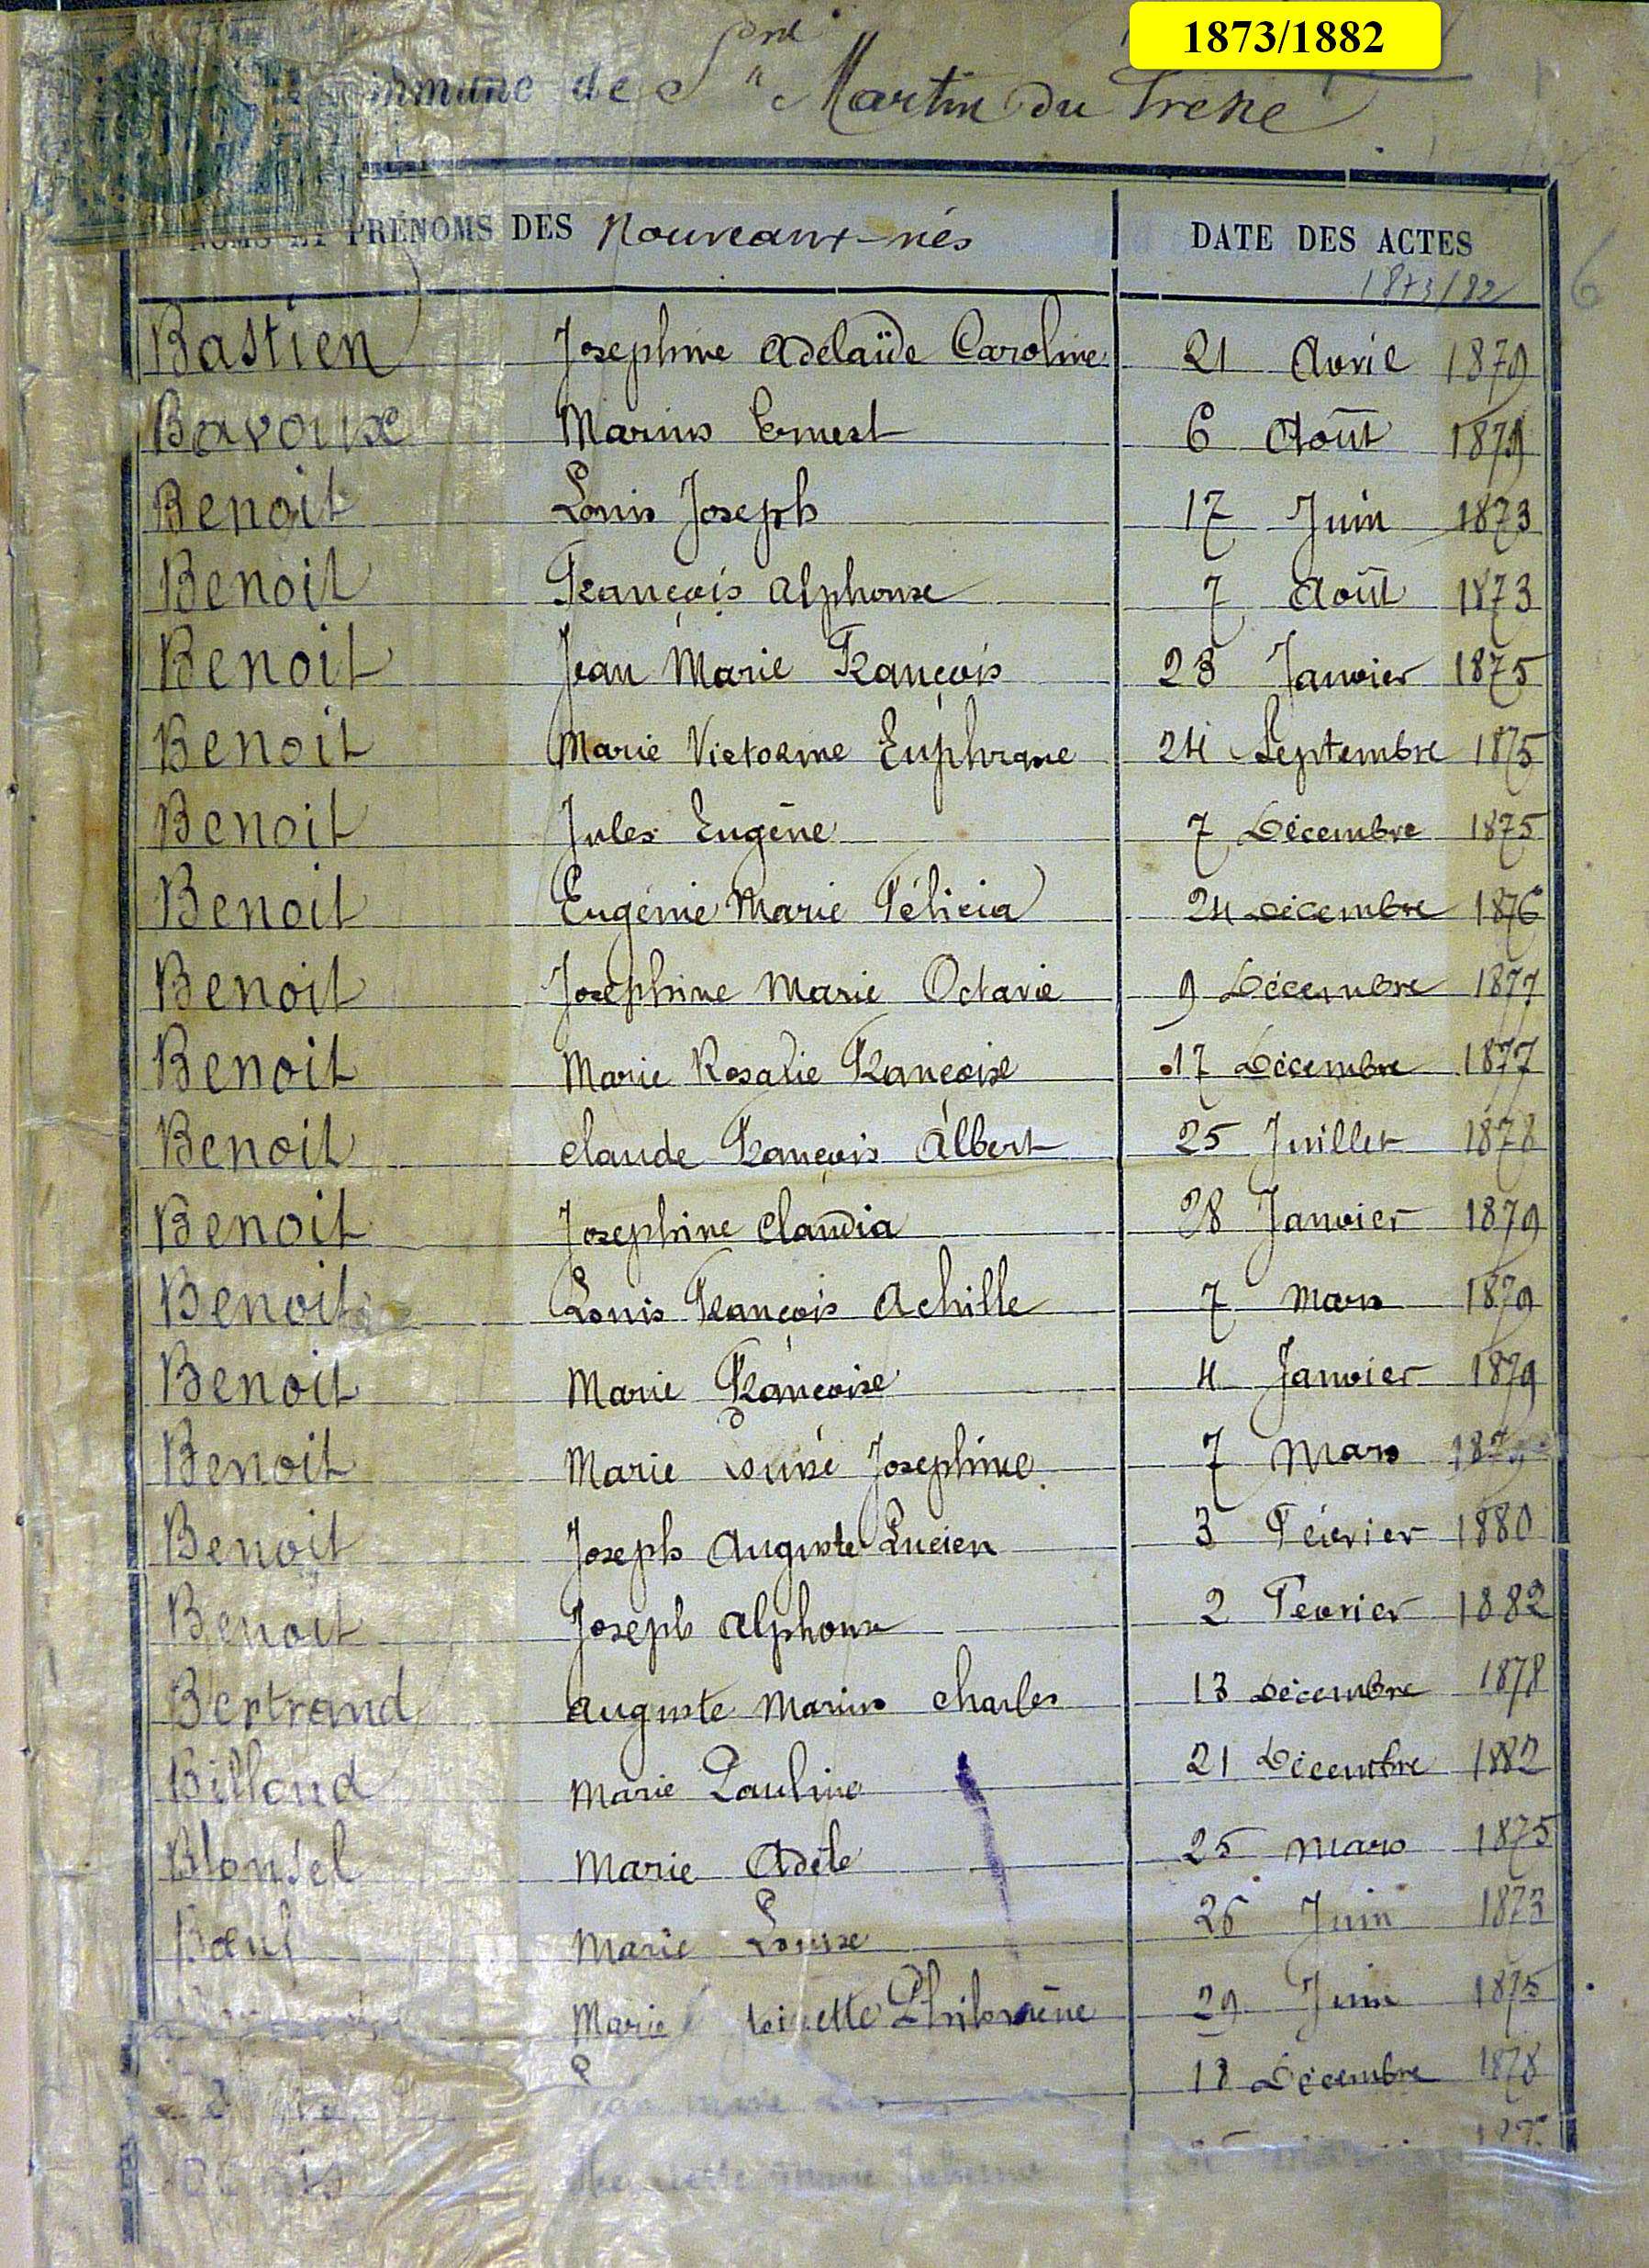 1873/1882
Commune de St Martin du Frêne
NOMS ET PRÉNOMS DES Nouveaux-nés DATE DES ACTES
1873/82
6
Bastien Josephine Adelaïde Caroline 21 Avril 1879
Bavoux Marius Ernest 6 Août 1879
Benoit Louis Joseph 17 Juin 1873
Benoit François Alphonse 7 Août 1873
Benoit Jean Marie François 23 Janvier 1875
Benoit Marie Victorine Euphrasie 24 Septembre 1875
Benoit Jules Eugène 7 Décembre 1875
Benoit Eugénie Marie Félicia 24 Décembre 1876
Benoit Josephine Marie Octavie 9 Décembre 1877
Benoit Marie Rosalie Françoise 17 Décembre 1877
Benoit Claude François Albert 25 Juillet 1878
Benoit Josephine Claudia 28 Janvier 1879
Benoit Louis François Achille 7 Mars 1879
Benoit Marie Françoise 4 Janvier 1879
Benoit Marie Louise Josephine 7 Mars 1879
Benoit Joseph Auguste Lucien 3 Février 1880
Benoit Joseph Alphonse 2 Février 1882
Bertrand Auguste Marius Charles 13 Décembre 1878
Billoud Marie Pauline 21 Décembre 1882
Blondel Marie Adèle 25 Mars 1875
Bœuf Marie Louise 26 Juin 1873
Marie Philomène 29 Juin 1875
18 Décembre 1878